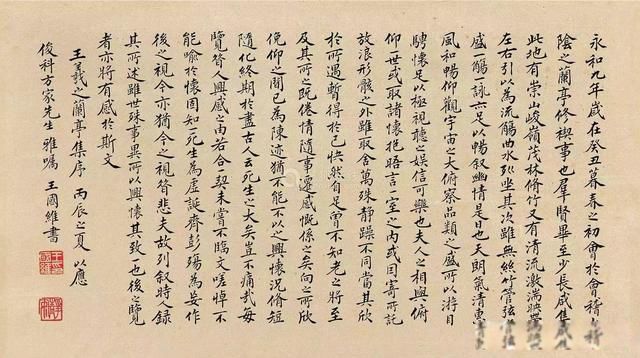 永和九年歲在癸丑暮春之初會於會稽山
陰之蘭亭修禊事也羣賢畢至少長咸集
此地有崇山峻嶺茂林脩竹又有清流激湍映帶
左右引以為流觴曲水列坐其次雖無絲竹管弦
盛一觴一詠亦足以暢叙幽情是日也天朗氣清惠
風和暢仰觀宇宙之大俯察品類之盛所以游目
騁懷足以極視聽之娛信可樂也夫人之相與俯
仰一世或取諸懷抱晤言一室之內或因寄所託
放浪形骸之外雖取舍萬殊靜躁不同當其欣
於所遇暫得於己快然自足曾不知老之將至
及其所之既倦情隨事遷感慨係之矣向之所欣
俛仰之間已為陳迹猶不能不以之興懷況脩短
隨化終期於盡古人云死生亦大矣豈不痛哉每
覽昔人興感之由若合一契未嘗不臨文嗟悼不
能喻於懷固知一死生為虛誕齊彭殤為妄作
後之視今亦猶今之視昔悲夫故列叙時人錄
其所述雖世殊事異所以興懷其致一也後之覽
者亦將有感於斯文
王羲之蘭亭集序 丙辰之夏 以應
俊科方家先生 雅囑 王國維書